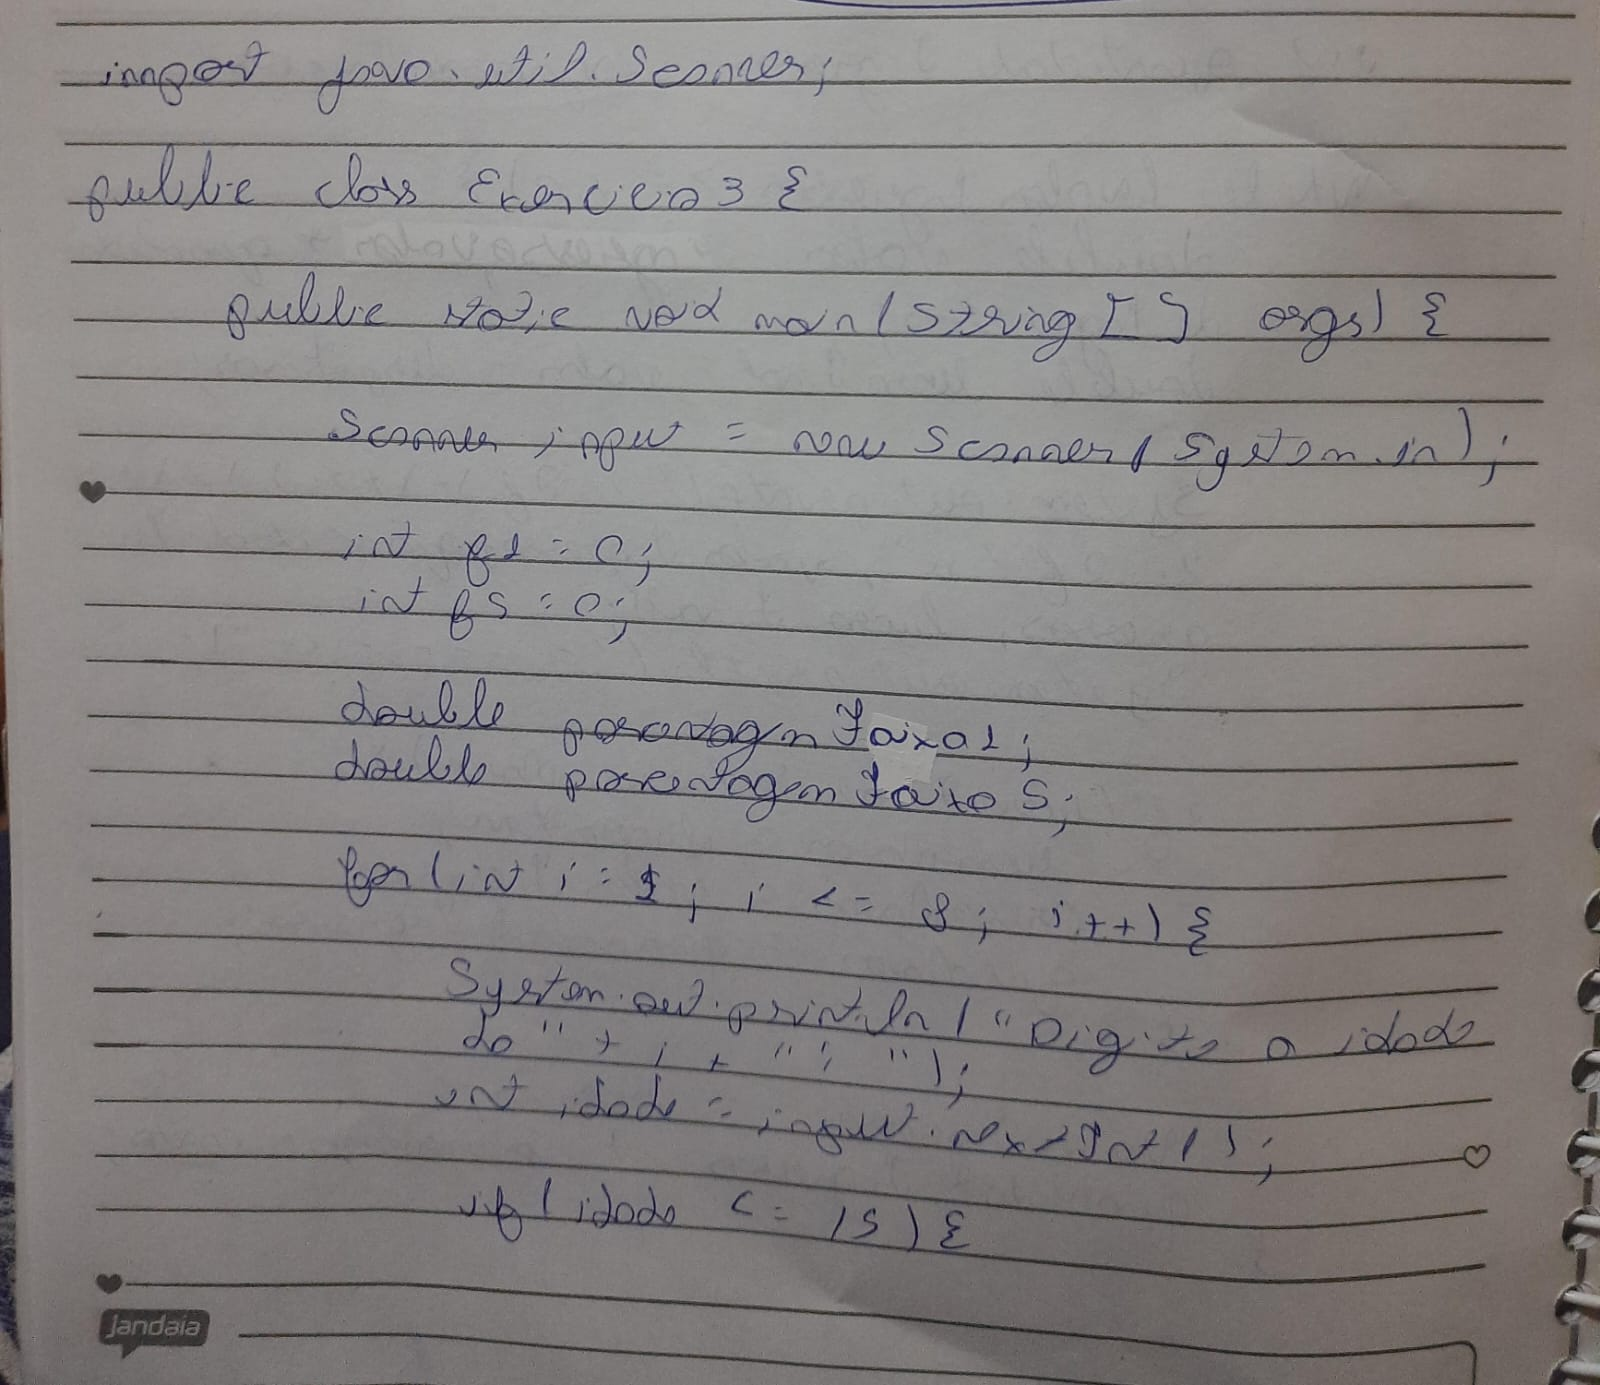 import java.util.Scanner;
public class Exercicio3 {
public static void main(String[] args) {
Scanner input = new Scanner(System.in);
int f1 = 0;
int f5 = 0;
double porcentagemFaixa1;
double porcentagemFaixa5;
for(int i = 1; i <= 8; i++){
System.out.println("Digite a idade
da " + i + ": ");
int idade = input.nextInt();
if(idade <= 15){
jandaia